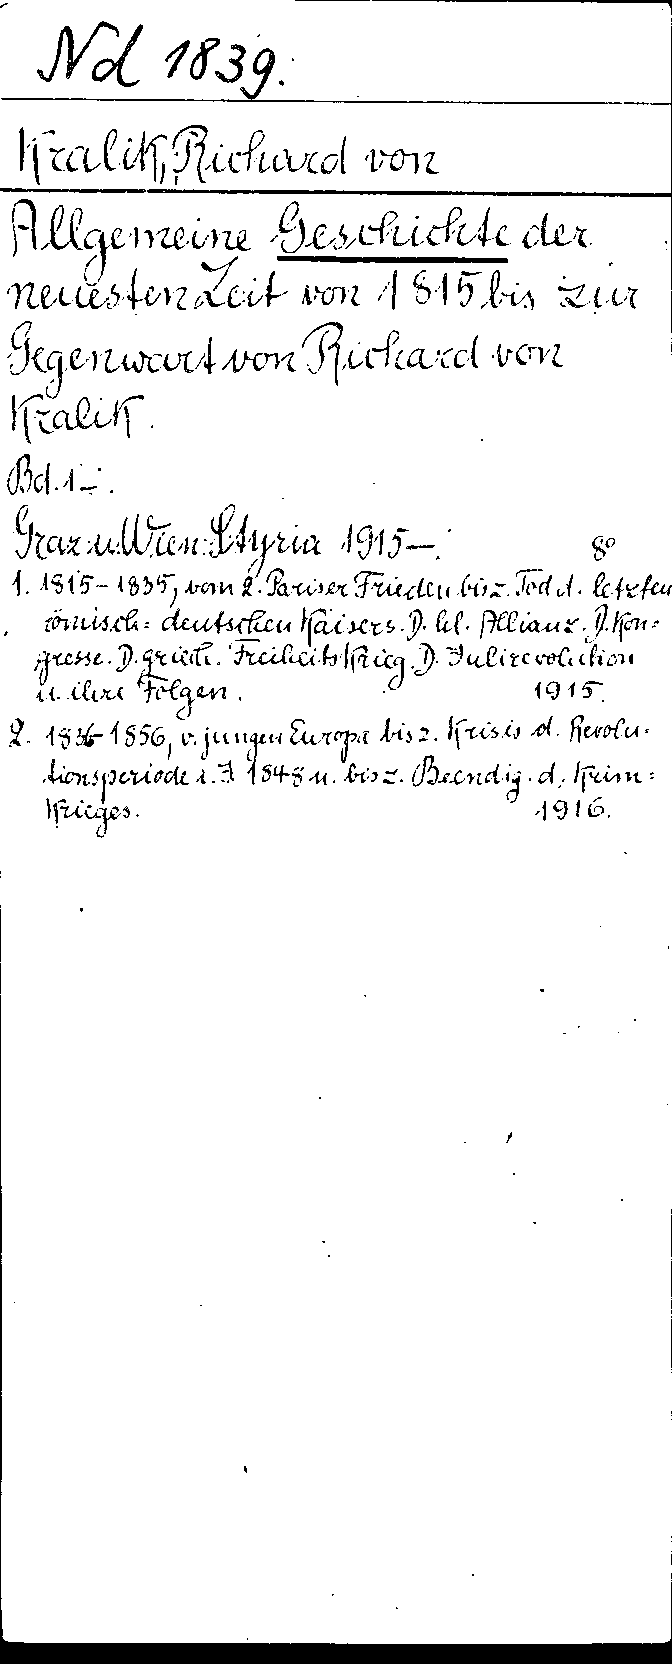 Nd 1839.
Kralik, Richard von
Allgemeine Geschichte der
neuesten Zeit von 1815 bis zur
Gegenwart von Richard von
Kralik.
Bd. 1-.
Graz u. Wien: Styria 1915-. 8°
1. 1815-1835, vom 2. Pariser Frieden bis z. Tod d. letzten
römisch=deutschen Kaisers. D. hl. Allianz. D. Kon=
gresse. D. griech. Freiheitskrieg. D. Julirevolution
u. ihre Folgen. 1915.
2. 1836-1856, v. jungen Europa bis z. Krisis d. Revolu=
tionsperiode i. J. 1848 u. bis z. Beendig. d. Krim=
krieges. 1916.